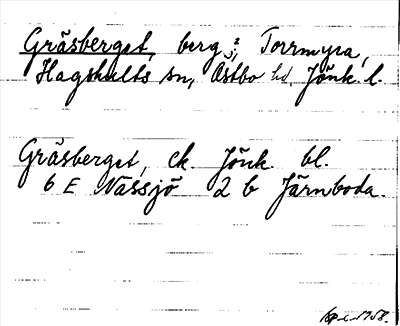 Gräsberget, berg i Torrmyra,
Hagshults sn, Östbo hd. Jönk. l.
Gräsberget, ek. Jönk. bl.
6 E Nässjö 2 b Järnboda.
1958.